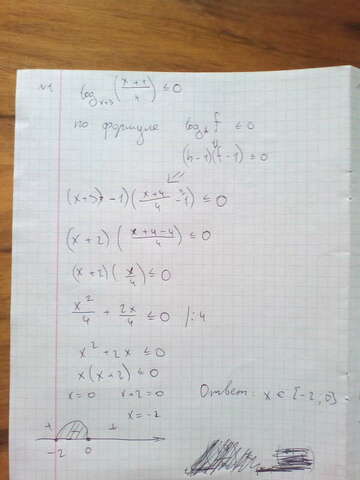 №1 log_{x+3}((x+1)/4) ≤ 0
по формуле log_h f ≤ 0
(h-1)(f-1) ≤ 0
(x+3-1)((x+4)/4 - 1) ≤ 0
(x+2)((x+4-4)/4) ≤ 0
(x+2)(x/4) ≤ 0
x²/4 + 2x/4 ≤ 0 /:4
x² + 2x ≤ 0
x(x+2) ≤ 0
x=0 x+2=0 Ответ: x ∈ [-2, 0]
x=-2
+ - +
-2 0